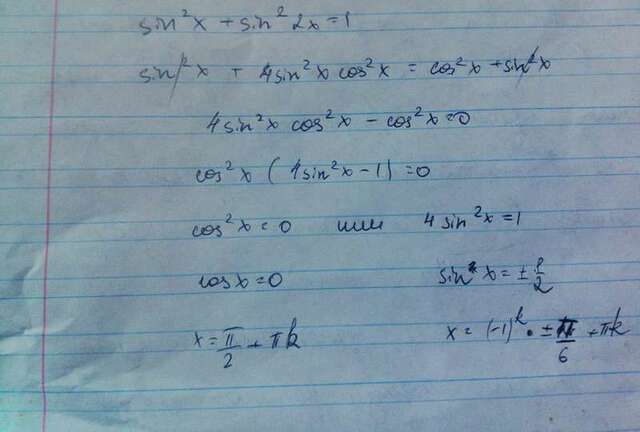 sin²x + sin²2x = 1
sin²x + 4sin²x cos²x = cos²x + sin²x
4sin²x cos²x - cos²x = 0
cos²x (4sin²x - 1) = 0
cos²x = 0 или 4 sin²x = 1
cosx = 0 sin x = ± 1/2
x = π/2 + πk x = (-1)^k · ± π/6 + πk